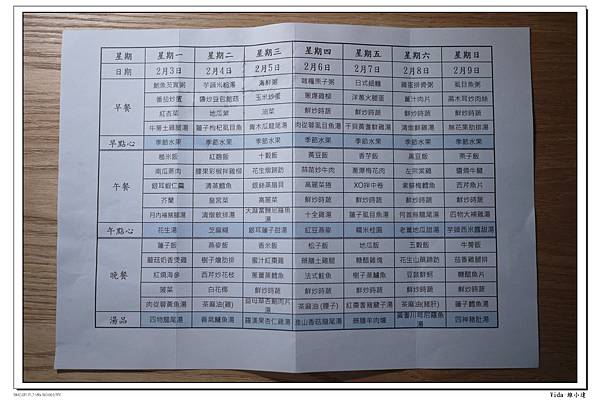 星期 星期一 星期二 星期三 星期四 星期五 星期六 星期日
日期 2月3日 2月4日 2月5日 2月6日 2月7日 2月8日 2月9日
早餐
鮑魚芡實粥 芋頭米粉湯 海鮮粥 雜糧栗子粥 日式細麵 雞蓉排骨粥 虱目魚粥
番茄炒蛋 玉米炒蛋 蔥爆雞柳 洋蔥火腿蛋 薑汁肉片 黑木耳炒肉絲
紅杏菜 地瓜葉 油菜 鮮炒時蔬 鮮炒時蔬 鮮炒時蔬 鮮炒時蔬
牛蒡土雞腿湯 蓮子枸杞虱目魚湯 青木瓜豬尾湯 肉從蓉虱目魚湯 干貝黃耆鮮雞湯 清燉鮮雞湯 無花果肋排湯
早點心 季節水果 季節水果 季節水果 季節水果 季節水果 季節水果 季節水果
午餐
糙米飯 紅麴飯 十穀飯 黃豆飯 香芋飯 黑豆飯 栗子飯
南瓜蒸肉 腰果彩椒拌雞柳 花生燉蹄筋 蒜苗炒牛肉 蔥爆梅花肉 左宗棠雞 鹽燒牛腱
銀耳蝦仁羹 清蒸鱈魚 銀絲蒸扇貝 高麗菜捲 XO拌中卷 素蘇梅鱈魚 西芹魚片
芥蘭 皇宮菜 高麗菜 鮮炒時蔬 鮮炒時蔬 鮮炒時蔬 鮮炒時蔬
月內補豬腳湯 清燉軟排湯 十全雞湯 蓮子虱目魚湯 何首烏豬尾湯 四物大補雞湯
午點心 花生湯 芝麻糊 銀耳蓮子甜湯 紅豆燕麥 糯米桂圓 老薑地瓜甜湯 芋頭西米露甜湯
晚餐
蓮子飯 燕麥飯 香米飯 松子飯 地瓜飯 五穀飯 牛蒡飯
蘑菇奶香燙雞 橙子燴肋排 蜜汁紅棗雞 麻膳土雞腿 糖醋雞塊 花生山藥蹄筋 茄香雞腿排
紅燒海參 西芹炒花枝 蔥薑蒸鱸魚 法式鮭魚 樹子蒸鱸魚 豆豉鮮蚵 糖醋魚片
菠菜 白花椰 鮮炒時蔬 鮮炒時蔬 鮮炒時蔬 鮮炒時蔬 鮮炒時蔬
肉從蓉黃魚湯 茶麻油(雞) 茶麻油(腰子) 紅棗耆豬腱子湯 茶麻油(豬肝) 蓮子鱸魚湯
湯品 四物豬尾湯 羅漢果杏仁雞湯 淮山香菇豬尾湯 麻膳羊肉爐 四神豬肚湯
Vida 維小達